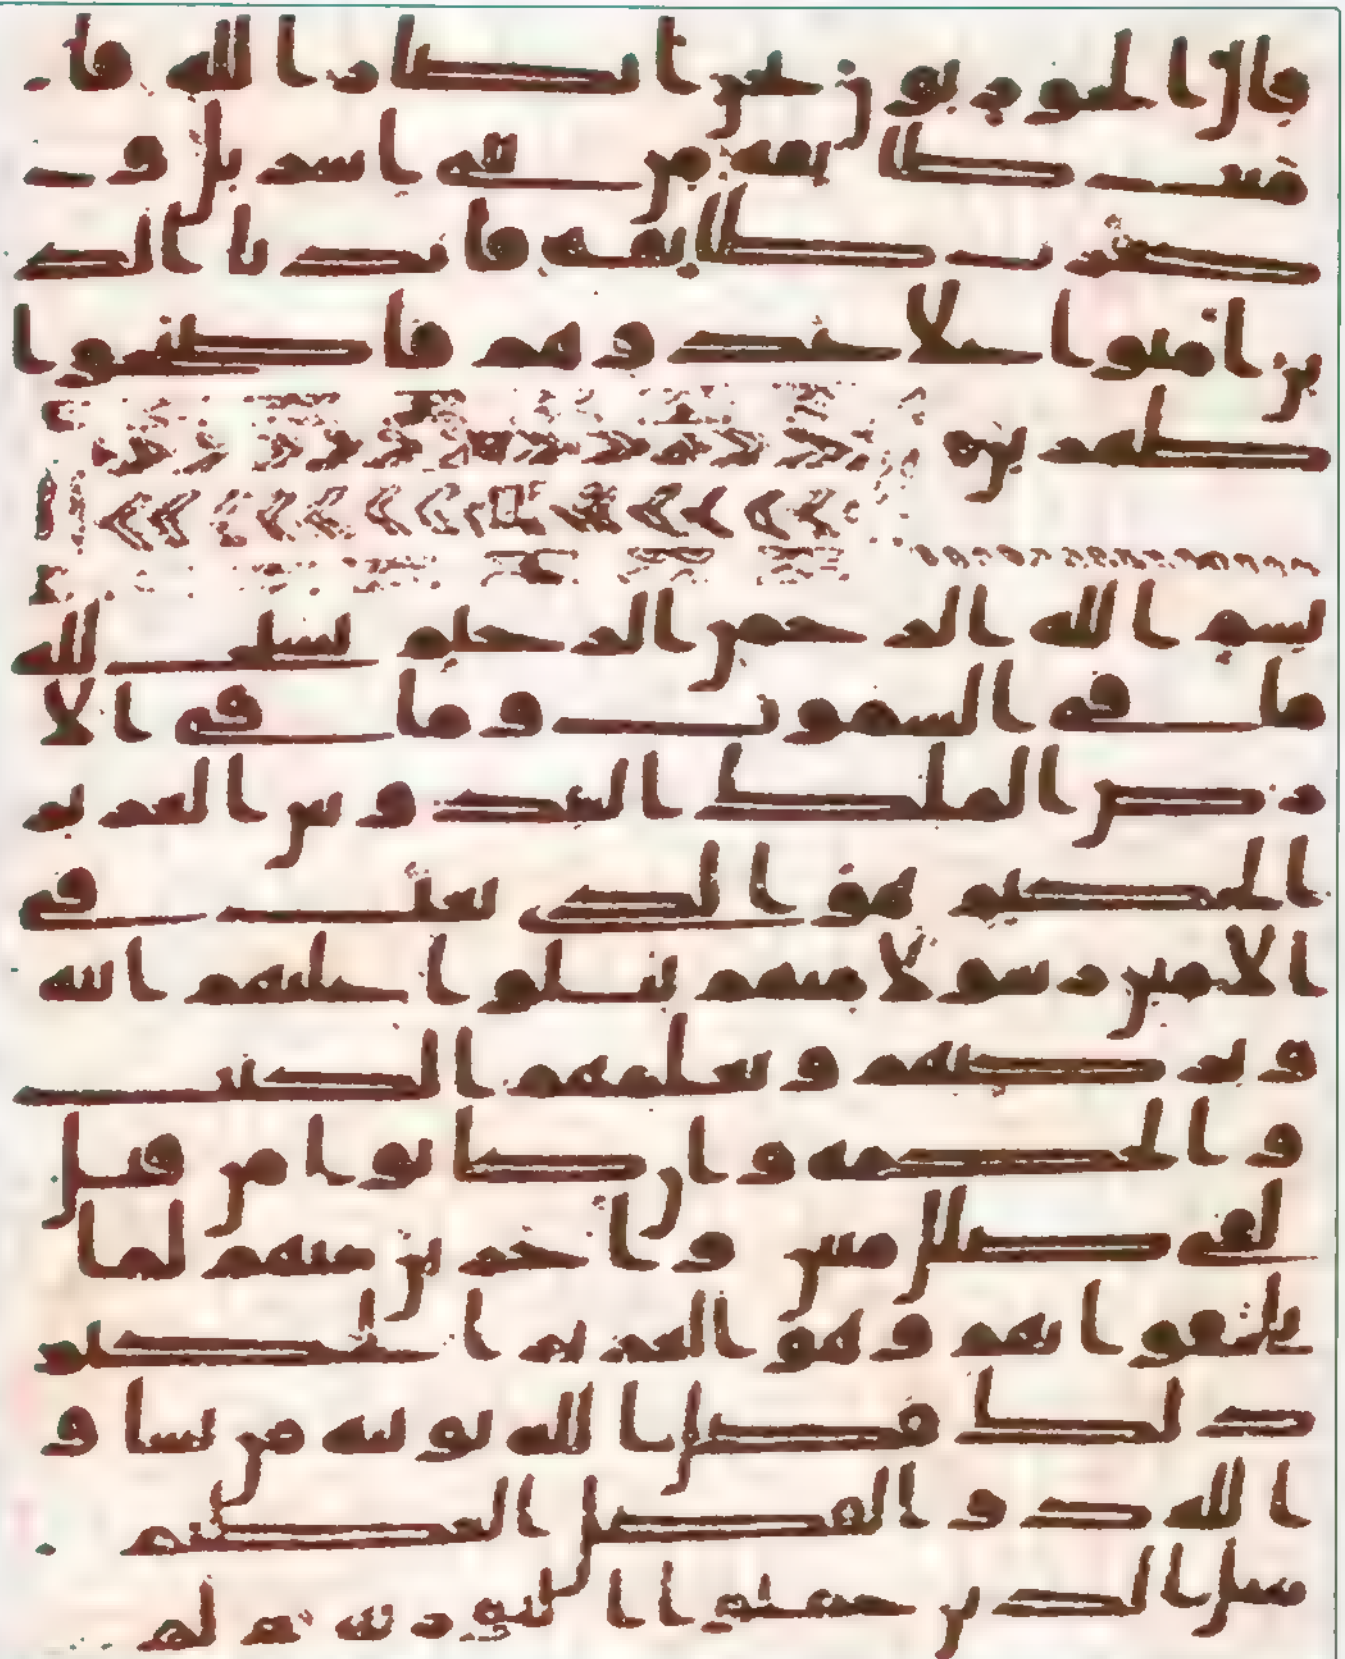 قال الحواريون نحن انصار الله فا
منت طايفة من بني اسريل و
كفرت طايفة فايدنا الذ
ين امنوا علا عدوهم فاصبحوا
ظهرين
بسم الله الرحمن الرحيم يسبح لله
ما في السموت وما في الا
رض الملك القدوس العزيز
الحكيم هو الذي بعث في
الامين رسولا منهم يتلوا عليهم ايته
ويزكيهم ويعلمهم الكتب
والحكمة وان كانوا من قبل
لفي ضلل مبين واخرين منهم لما
يلحقوا بهم وهو العزيز الحكيم
ذلك فضل الله يوتيه من يشا و
الله ذو الفضل العظيم
مثل الذين حملوا التورية ثم لم